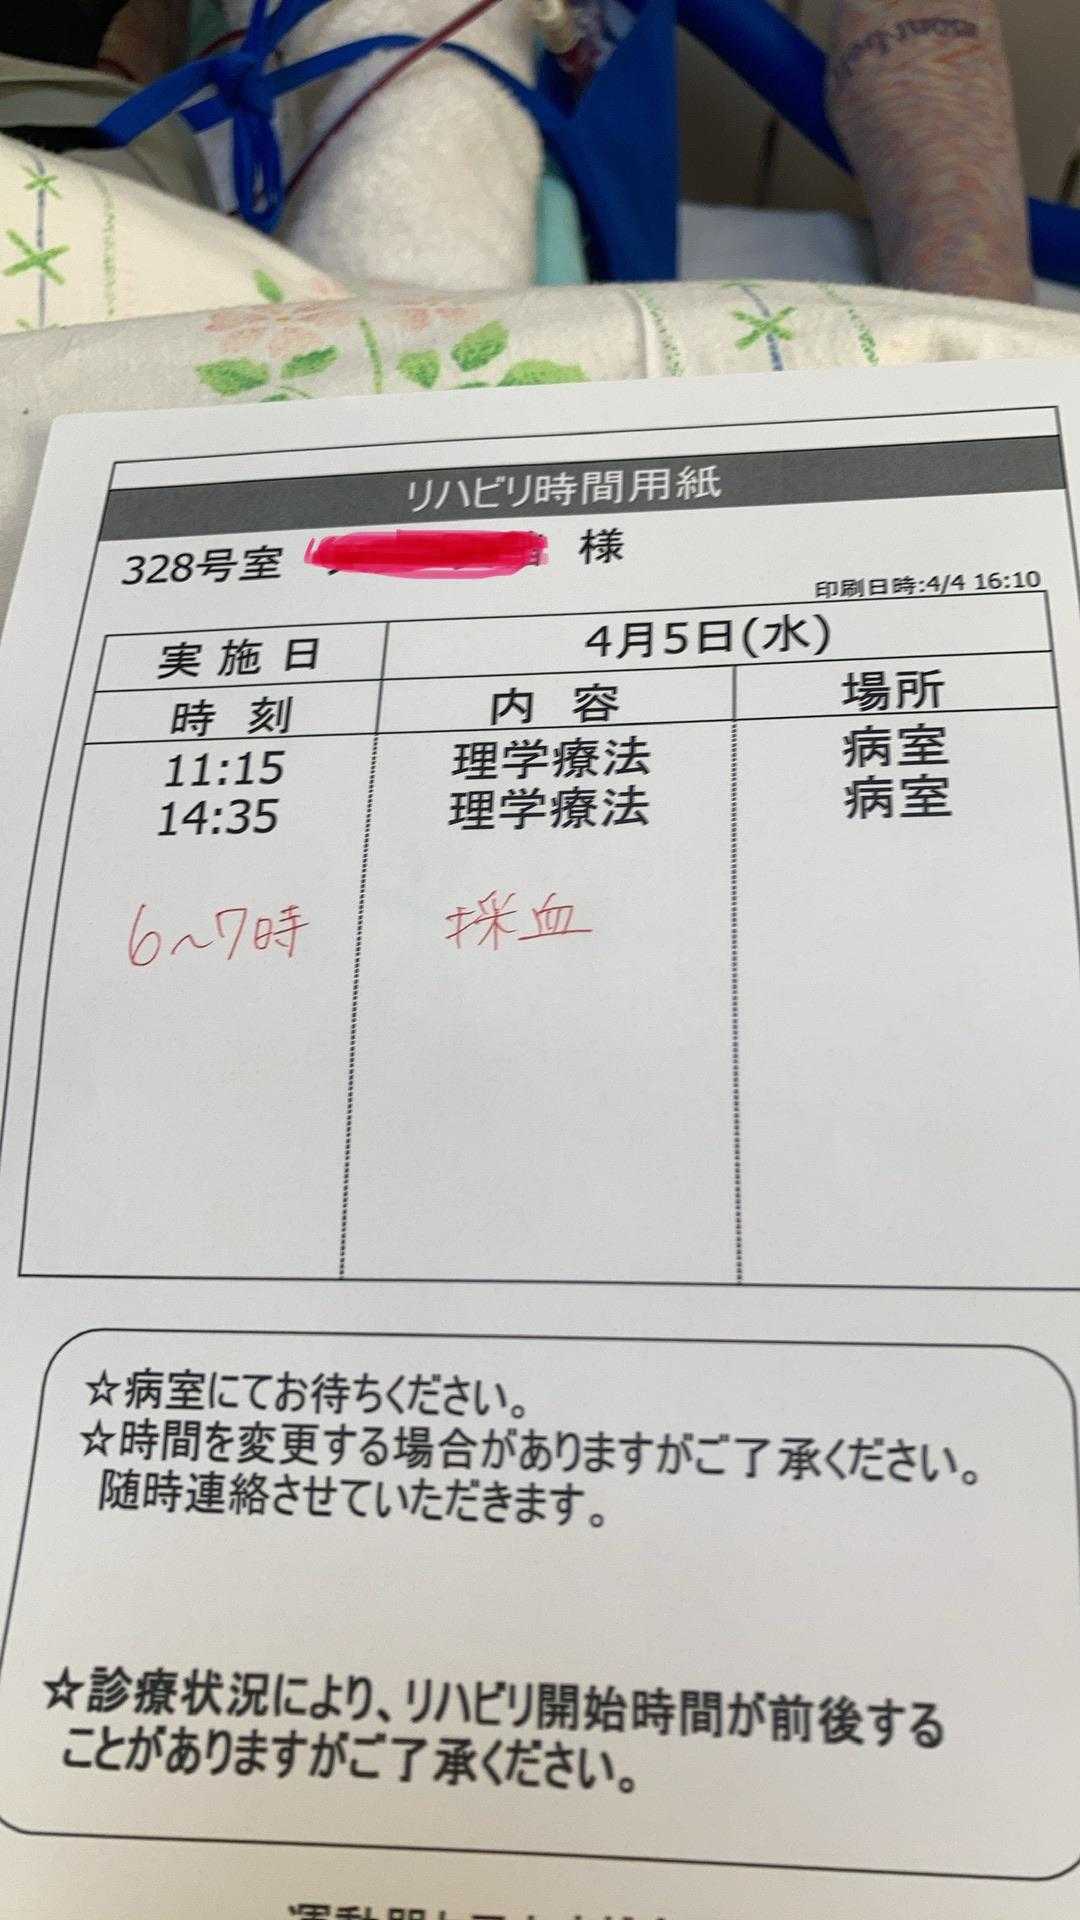 リハビリ時間用紙
328号室 様
印刷日時:4/4 16:10
実施日 4月5日(水)
時刻 内容 場所
11:15 理学療法 病室
14:35 理学療法 病室
6~7時 採血
☆病室にてお待ちください。
☆時間を変更する場合がありますがご了承ください。
随時連絡させていただきます。
☆診療状況により、リハビリ開始時間が前後する
ことがありますがご了承ください。